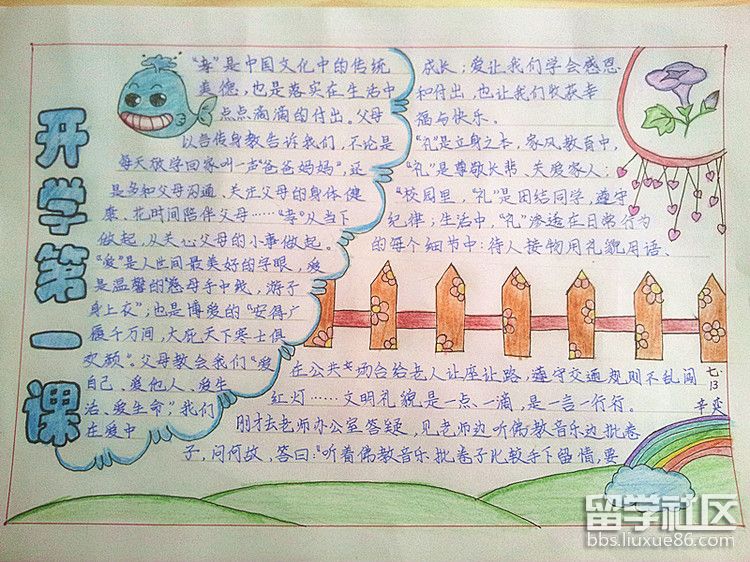 开学第一课
“孝”是中国文化中的传统
美德，也是落实在生活中
点点滴滴的付出。父母
以言传身教告诉我们，不论是
每天放学回家叫一声“爸爸妈妈”，还
是多和父母沟通、关注父母的身体健
康、花时间陪伴父母……“孝”从当下
做起，从关心父母的小事做起。
“爱”是人世间最美好的字眼，爱
是温馨的慈母手中线，游子
身上衣”；也是博爱的“安得广
厦千万间，大庇天下寒士俱
欢颜”。父母教会我们“爱
自己、爱他人、爱生
活、爱生命”，我们
在爱中
成长；爱让我们学会感恩
和付出，也让我们收获幸
福与快乐。
“礼”是立身之本，家风教育中，
“礼”是尊敬长辈、关爱家人；
“校园里，“礼”是团结同学，遵守
纪律；生活中，“礼”渗透在日常行为
的每个细节中：待人接物用礼貌用语、
在公共场合给老人让座让路，遵守交通规则不乱闯
红灯……文明礼貌是一点一滴，是一言一行。
刚才去老师办公室答疑，见老师边听佛教音乐边批卷
子，问何故，答曰：“听着佛教音乐批卷子比较手下留情，要
七.13
留学社区
bbs.liuxue86.com